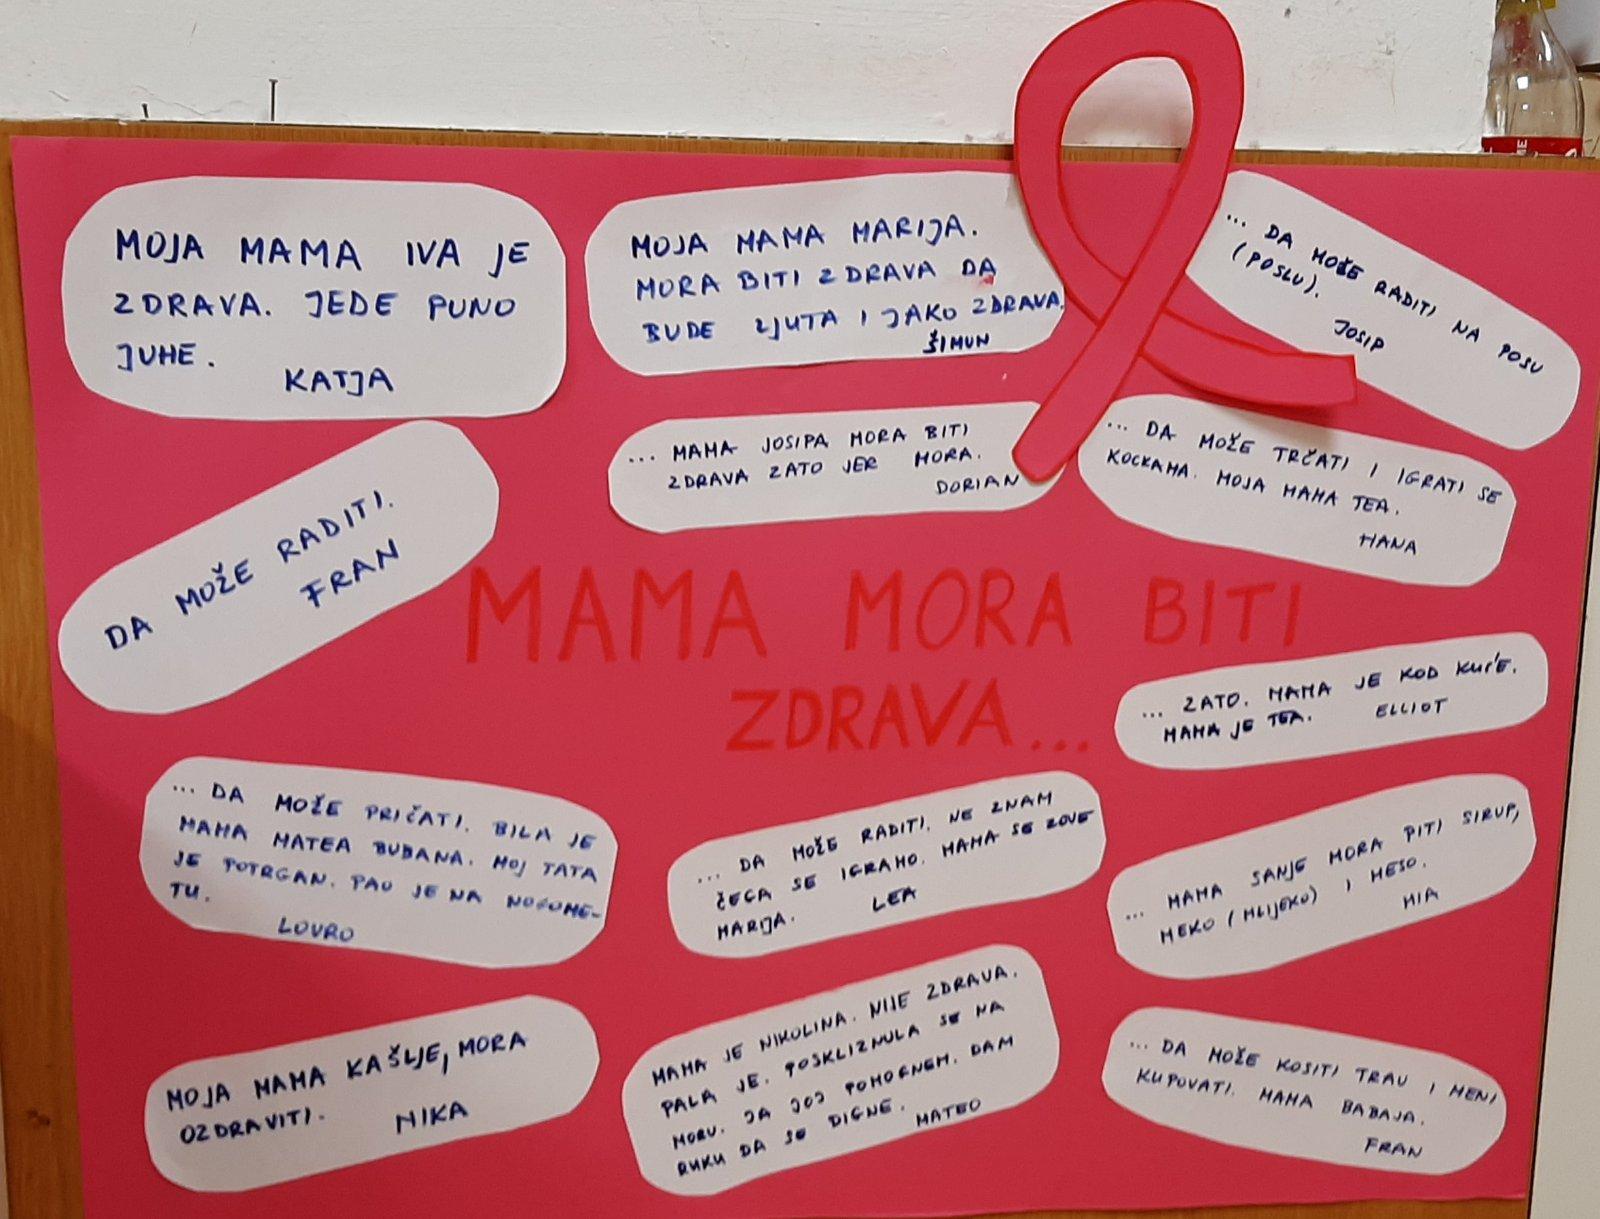 MOJA MAMA IVA JE
ZDRAVA. JEDE PUNO
JUHE.
KATJA
MOJA MAMA MARIJA.
MORA BITI ZDRAVA DA
BUDE ZJUTA I JAKO ZDRAVA.
ŠIMUN
... DA MOŽE RADITI NA POSU
(POSLU).
JOSIP
DA MOŽE RADITI.
FRAN
... MAMA JOSIPA MORA BITI
ZDRAVA ZATO JER MORA.
DORIAN
... DA MOŽE TRČATI I IGRATI SE
KOCKAMA. MOJA MAMA TEA.
HANA
MAMA MORA BITI
ZDRAVA...
... ZATO. MAMA JE KOD KUĆE.
MAMA JE TEA. ELLIOT
... DA MOŽE PRIČATI. BILA JE
MAMA MATEA BUBANA. MOJ TATA
JE POTRGAN. PAO JE NA NOGOME-
TU.
LOVRO
... DA MOŽE RADITI. NE ZNAM
ČEGA SE IGRAMO. MAMA SE ZOVE
MARIJA. LEA
... MAMA SANJE MORA PITI SIRUP,
MEKO (MLIJEKO) I MESO.
MIA
MOJA MAMA KAŠLJE, MORA
OZDRAVITI. NIKA
MAMA JE NIKOLINA. NIJE ZDRAVA.
PALA JE. POSKLIZNULA SE NA
MORU. JA JOJ POMOGNEM. DAM
RUKU DA SE DIGNE. MATEO
... DA MOŽE KOSITI TRAU I MENI
KUPOVATI. MAMA BABAJA.
FRAN